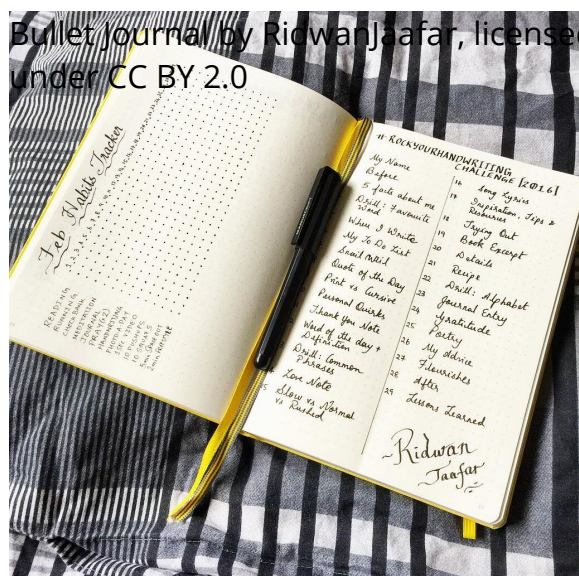 Bullet Journal by RidwanJaafar, license
under CC BY 2.0
Feb Habits Tracker
READING
RUNNING
CHECK BANK
MEDITATION
JOURNAL
PRAY (x2)
HANDWRITING
PHOTO-A-DAY
1 SEC VIDEO
10 PUSHUPS
10 SQUATS
#ROCKYOURHANDWRITING
CHALLENGE [2016]
My Name
Before
5 facts about me
Drill: Favourite
Word
When I Write
My To Do List
Snail Mail
Quote of the Day
Print vs Cursive
Personal Quirks
Thank You Note
Word of the day +
Definition
Drill: Common
Phrases
Love Note
Slow vs Normal
vs Rushed
16 Song Lyrics
17 Inspiration, Tips &
Resources
18 Trying Out
19 Book Excerpt
20 Details
21 Recipe
22 Drill: Alphabet
23 Journal Entry
24 Gratitude
25 Poetry
26 My Advice
27 Flourishes
28 After
29 Lessons Learned
~Ridwan
Jaafar